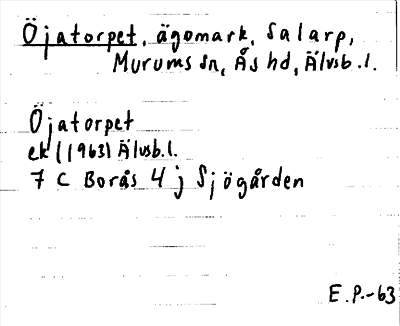 Öjatorpet, ägomark, Salarp,
Murums sn, Ås hd, Älvsb.l.
Öjatorpet
ek (1963) Älvsb.l.
7 C Borås 4 j Sjögården
E.P.-63